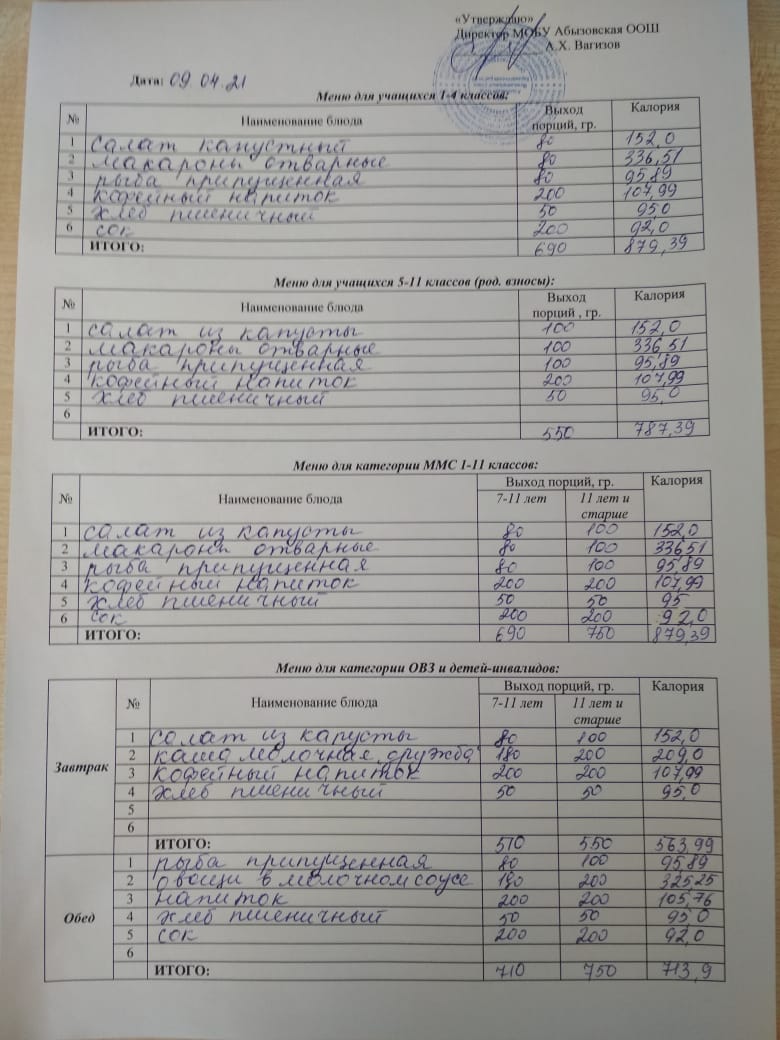 «Утверждаю»
Директор МОБУ Абызовская ООШ
А.Х. Вагизов
Дата: 09.04.21
Меню для учащихся 1-4 классов:
№ Наименование блюда Выход порций, гр. Калория
1 салат капустный 80 152,0
2 макароны отварные 80 336,51
3 рыба припущенная 80 95,89
4 кофейный напиток 200 107,99
5 хлеб пшеничный 50 95,0
6 сок 200 92,0
ИТОГО: 690 879,39
Меню для учащихся 5-11 классов (род. взносы):
№ Наименование блюда Выход порций , гр. Калория
1 салат из капусты 100 152,0
2 макароны отварные 100 336,51
3 рыба припущенная 100 95,89
4 кофейный напиток 200 107,99
5 хлеб пшеничный 50 95,0
6
ИТОГО: 550 787,39
Меню для категории ММС 1-11 классов:
№ Наименование блюда Выход порций, гр. Калория
7-11 лет 11 лет и старше
1 салат из капусты 80 100 152,0
2 макароны отварные 80 100 336,51
3 рыба припущенная 80 100 95,89
4 кофейный напиток 200 200 107,99
5 хлеб пшеничный 50 50 95
6 сок 200 200 92,0
ИТОГО: 690 750 879,39
Меню для категории ОВЗ и детей-инвалидов:
№ Наименование блюда Выход порций, гр. Калория
7-11 лет 11 лет и старше
Завтрак
1 салат из капусты 80 100 152,0
2 каша молочная дружба 180 200 209,0
3 кофейный напиток 200 200 107,99
4 хлеб пшеничный 50 50 95,0
5
6
ИТОГО: 510 550 563,99
Обед
1 рыба припущенная 80 100 95,89
2 овощи в молочном соусе 180 200 325,25
3 напиток 200 200 105,76
4 хлеб пшеничный 50 50 95,0
5 сок 200 200 92,0
6
ИТОГО: 710 750 713,9